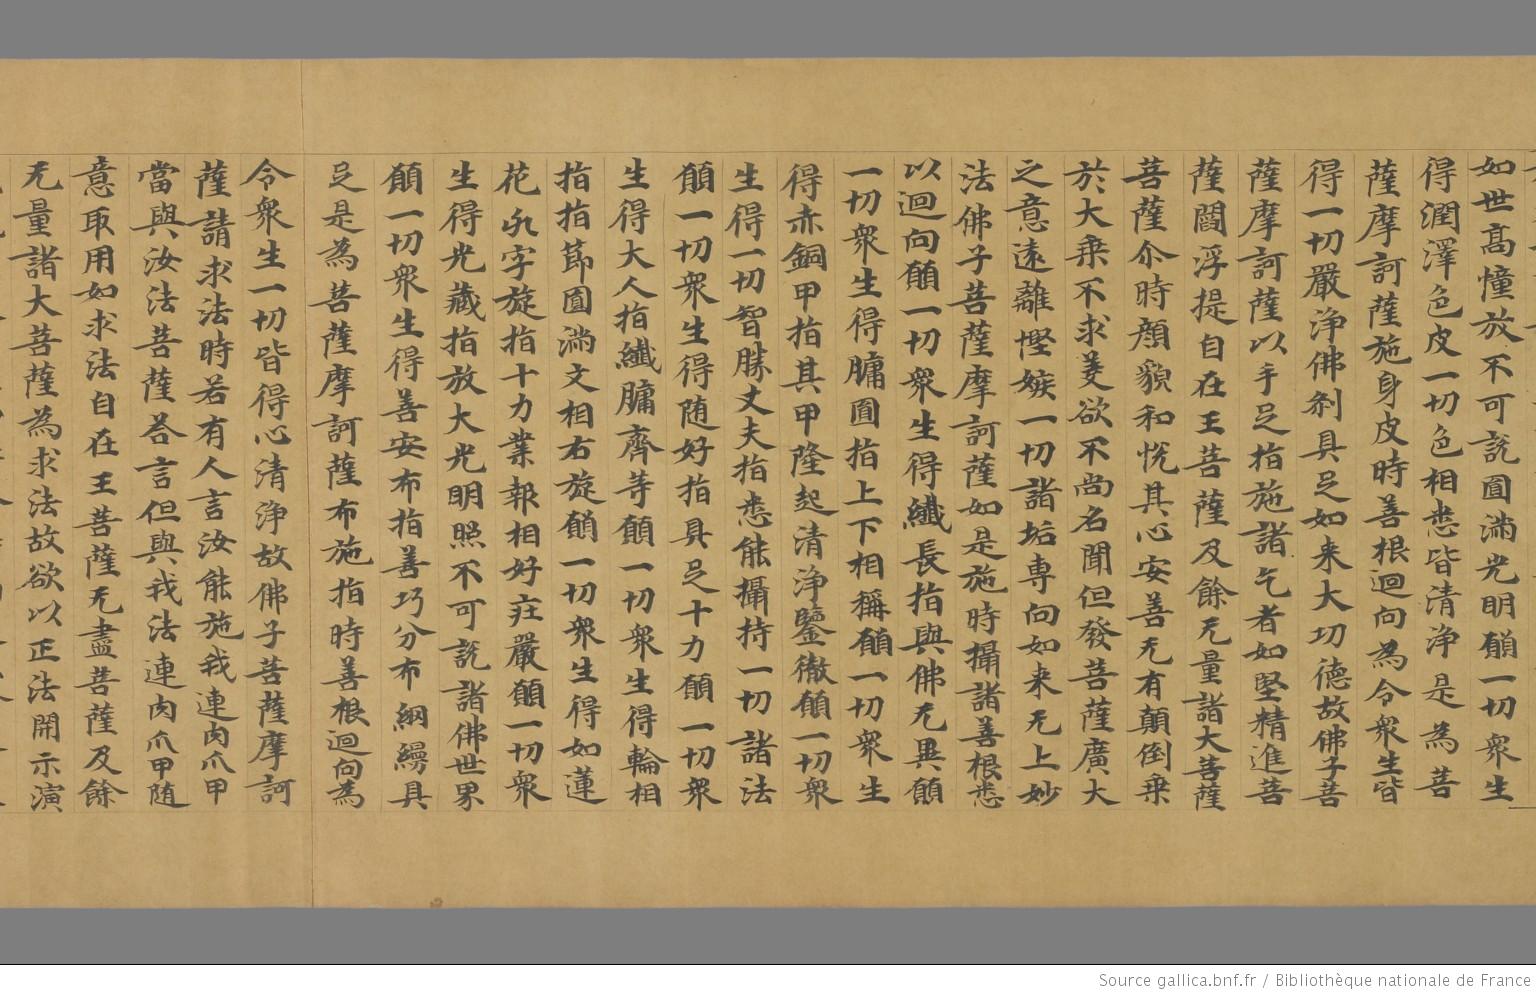 如世高憧放不可説圓滿光明願一切衆生
得潤澤色皮一切色相悉皆清淨是為菩
薩摩訶薩施身皮時善根迴向為令衆生皆
得一切嚴淨佛剎具足如来大切德故佛子菩
薩摩訶薩以手足指施諸乞者如堅精進菩
薩閻浮提自在王菩薩及餘无量諸大菩薩
菩薩尒時顔貌和悅其心安善无有顛倒乗
於大乗不求羙欲不尚名聞但發菩薩廣大
之意遠離慳嫉一切諸垢専向如来无上妙
法佛子菩薩摩訶薩如是施時攝諸善根悉
以迴向願一切衆生得纖長指與佛无異願
一切衆生得𦟛圓指上下相稱願一切衆生
得赤銅甲指其甲隆起清浄鑒徹願一切衆
生得一切智勝丈夫指悉能攝持一切諸法
願一切衆生得随好指具足十力願一切衆
生得大人指纖𦟛齊等願一切衆生得輪相
指指節圓滿文相右旋願一切衆生得如蓮
花卍字旋指十力業報相好莊嚴願一切衆
生得光藏指放大光明照不可説諸佛世界
願一切衆生得善安布指善巧分布網縵具
足是為菩薩摩訶薩布施指時善根迴向為
令衆生一切皆得心清淨故佛子菩薩摩訶
薩請求法時若有人言汝能施我連肉爪甲
當與汝法菩薩荅言但與我法連肉爪甲随
意取用如求法自在王菩薩无盡菩薩及餘
无量諸大菩薩為求法故欲以正法開示演
Source gallica.bnf.fr / Bibliothèque nationale de France